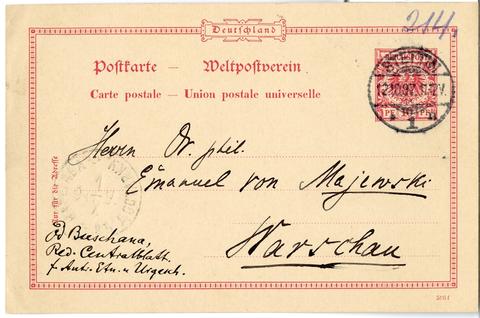 214.
Deutschland
Postkarte — Weltpostverein
Carte postale — Union postale universelle
STETTIN
1
Herrn Dr. phil.
Emanuel von Majewski
Warschau
Nur für die Adresse
Buschan,
Red. Centralblatt.
f. Ant. Etn. u. Urgesch.